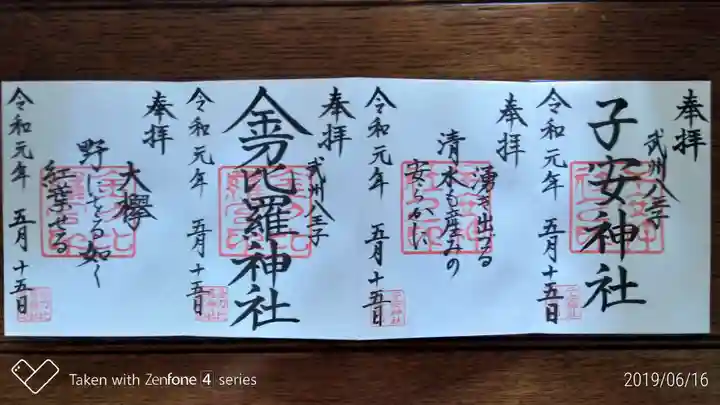 奉拝
武州八王子
子安神社
令和元年 五月十五日
奉拝
湧き出づる
清水も産みの
安らかに
令和元年 五月十五日
奉拝
武州八王子
金刀比羅神社
令和元年 五月十五日
奉拝
大欅
野にそる如く
紅葉せる
令和元年 五月十五日
Taken with Zenfone 4 series
2019/06/16